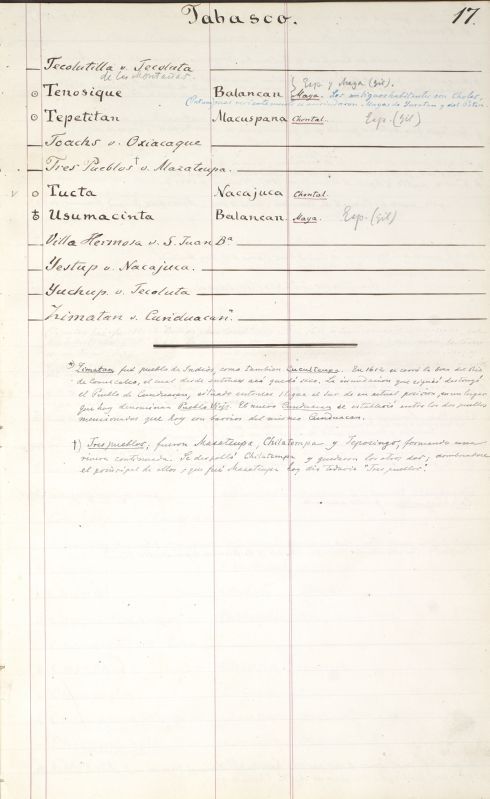 Tabasco.
17.
Tecolutilla v. Tecoluta
de los Montañas.
Esp. y Maya (gil).
Tenosique Balancan Maya. Los antiguos habitantes son Choles,
Mayas de Yucatan y del Peten.
Tepetitan Macuspana Chontal. Esp. (gil)
Toachs v. Oxiacaque
Tres Pueblos† v. Mazateupa.
v o Tucta Nacajuca Chontal.
Usumacinta Balancan Maya. Esp. (gil)
Villa Hermosa v. S. Juan Bª
Yestup v. Nacajuca.
Yuchup v. Tecoluta
Zimatan v. Cunduacan*.
*) Zimatan fué pueblo de Indios, como tambien Cucultiupa. En 1612 se cerró la boca del Rio
de Comalcalco, el cual desde entonces acá quedó seco. La inundacion que siguió destruyó
el Pueblo de Cunduacan, situado entonces al sur de su actual posicion, en un lugar
que hoy denominan Pueblo Viejo. El nuevo Cunduacan se estableció entre los dos pueblos
mencionados que hoy son barrios del mismo Cunduacan.
†) Tres pueblos, fueron Mazateupa, Chilatempa y Tepocingo, formando una
rivera continuada. Se despobló Chilatempa y quedaron los otros dos;
el principal de ellos que fué Mazateupa hoy dia todavia "Tres pueblos".